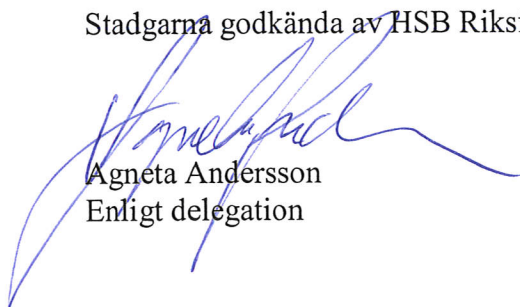 Stadgarna godkända av HSB Riks
Agneta Andersson
Enligt delegation